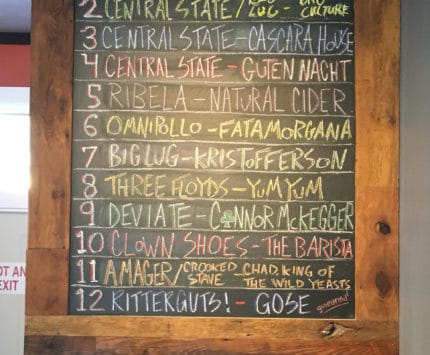 2 CENTRAL STATE/ BIG LUG - BRO CULTURE
3 CENTRAL STATE-CASCARA HOUSE
4 CENTRAL STATE - GUTEN NACHT
5 RIBELA - NATURAL CIDER
6 OMNIPOLLO - FATAMORGANA
7 BIG LUG - KRISTOFFERSON
8 THREE FLOYDS - YUM YUM
9 DEVIATE - CONNOR MCKEGGER
10 CLOWN SHOES - THE BARISTA
11 AMAGER/ CROOKED STAVE CHAD, KING OF THE WILD YEASTS
12 KITTERGUTS! - GOSE
OT AN
EXIT